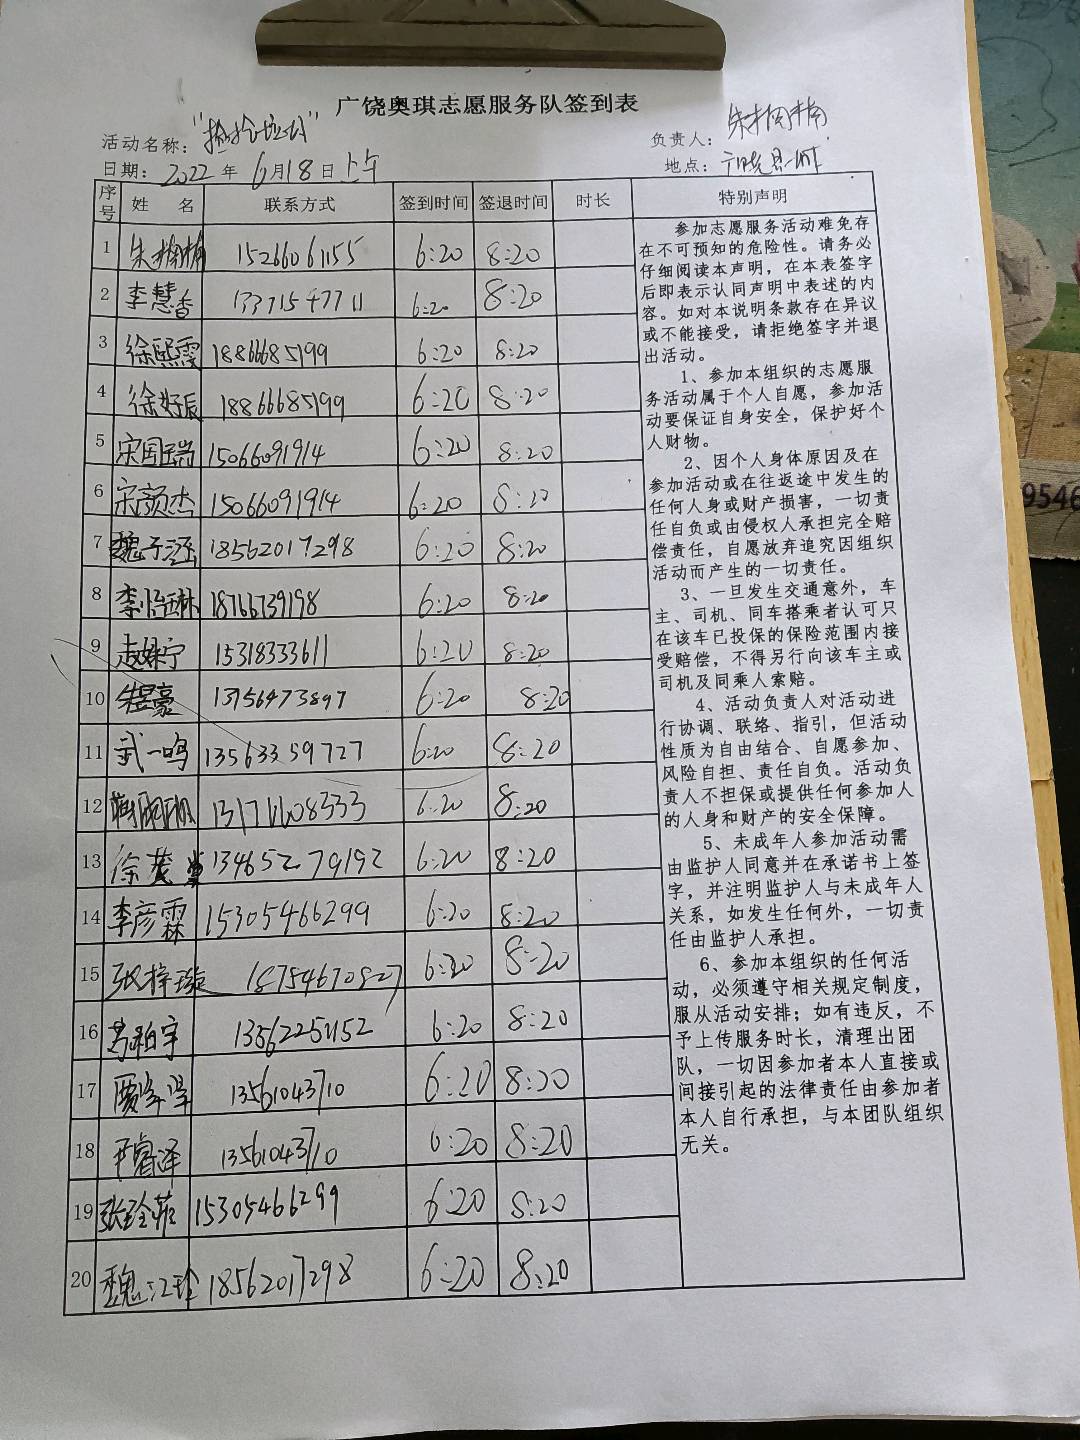 广饶奥琪志愿服务队签到表
活动名称："捡拾垃圾" 负责人：朱楠楠
日期：2022年6月18日上午 地点：广饶县城
序号 姓名 联系方式 签到时间 签退时间 时长 特别声明
1 朱楠楠 15266061155 6:20 8:20
2 李慧香 13371547711 6:20 8:20
3 徐熙雯 18866685199 6:20 8:20
4 徐好辰 18866685199 6:20 8:20
5 宋国瑞 15066091914 6:20 8:20
6 宋颜杰 15066091914 6:20 8:20
7 魏子涵 18562017298 6:20 8:20
8 李怡琳 18766739198 6:20 8:20
9 赵姝宁 15318333611 6:20 8:20
10 豪 13756473897 6:20 8:20
11 武一鸣 13563359727 6:20 8:20
12 6:20 8:20
13 徐 13465279192 6:20 8:20
14 李彦霖 15305466299 6:20 8:20
15 张梓璇 18754670827 6:20 8:20
16 柏宇 6:20 8:20
17 贾 13561043710 6:20 8:20
18 尹睿泽 13561043710 6:20 8:20
19 张玲菲 15305466299 6:20 8:20
20 魏江玲 18562017298 6:20 8:20
参加志愿服务活动难免存
在不可预知的危险性。请务必
仔细阅读本声明，在本表签字
后即表示认同声明中表述的内
容。如对本说明条款存在异议
或不能接受，请拒绝签字并退
出活动。
1、参加本组织的志愿服
务活动属于个人自愿，参加活
动要保证自身安全，保护好个
人财物。
2、因个人身体原因及在
参加活动或在往返途中发生的
任何人身或财产损害，一切责
任自负或由侵权人承担完全赔
偿责任，自愿放弃追究因组织
活动而产生的一切责任。
3、一旦发生交通意外，车
主、司机、同车搭乘者认可只
在该车已投保的保险范围内接
受赔偿，不得另行向该车主或
司机及同乘人索赔。
4、活动负责人对活动进
行协调、联络、指引，但活动
性质为自由结合、自愿参加、
风险自担、责任自负。活动负
责人不担保或提供任何参加人
的人身和财产的安全保障。
5、未成年人参加活动需
由监护人同意并在承诺书上签
字，并注明监护人与未成年人
关系，如发生任何外，一切责
任由监护人承担。
6、参加本组织的任何活
动，必须遵守相关规定制度，
服从活动安排；如有违反，不
予上传服务时长，清理出团
队，一切因参加者本人直接或
间接引起的法律责任由参加者
本人自行承担，与本团队组织
无关。
9546